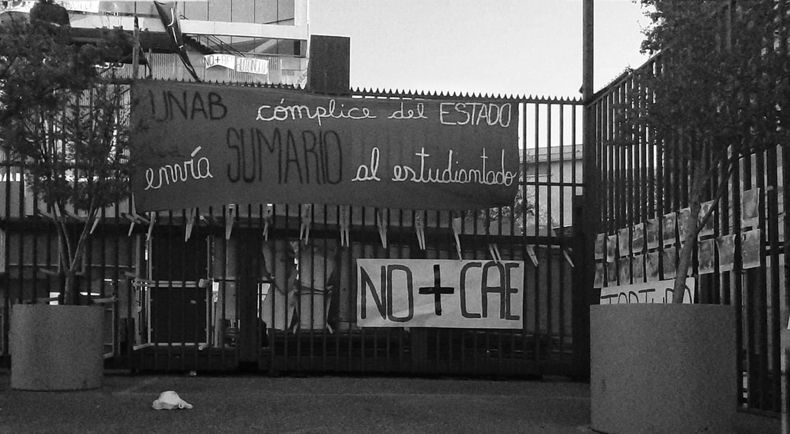 NO+CAE
UNAB cómplice del ESTADO
envía SUMARIO al estudiantado
NO+CAE